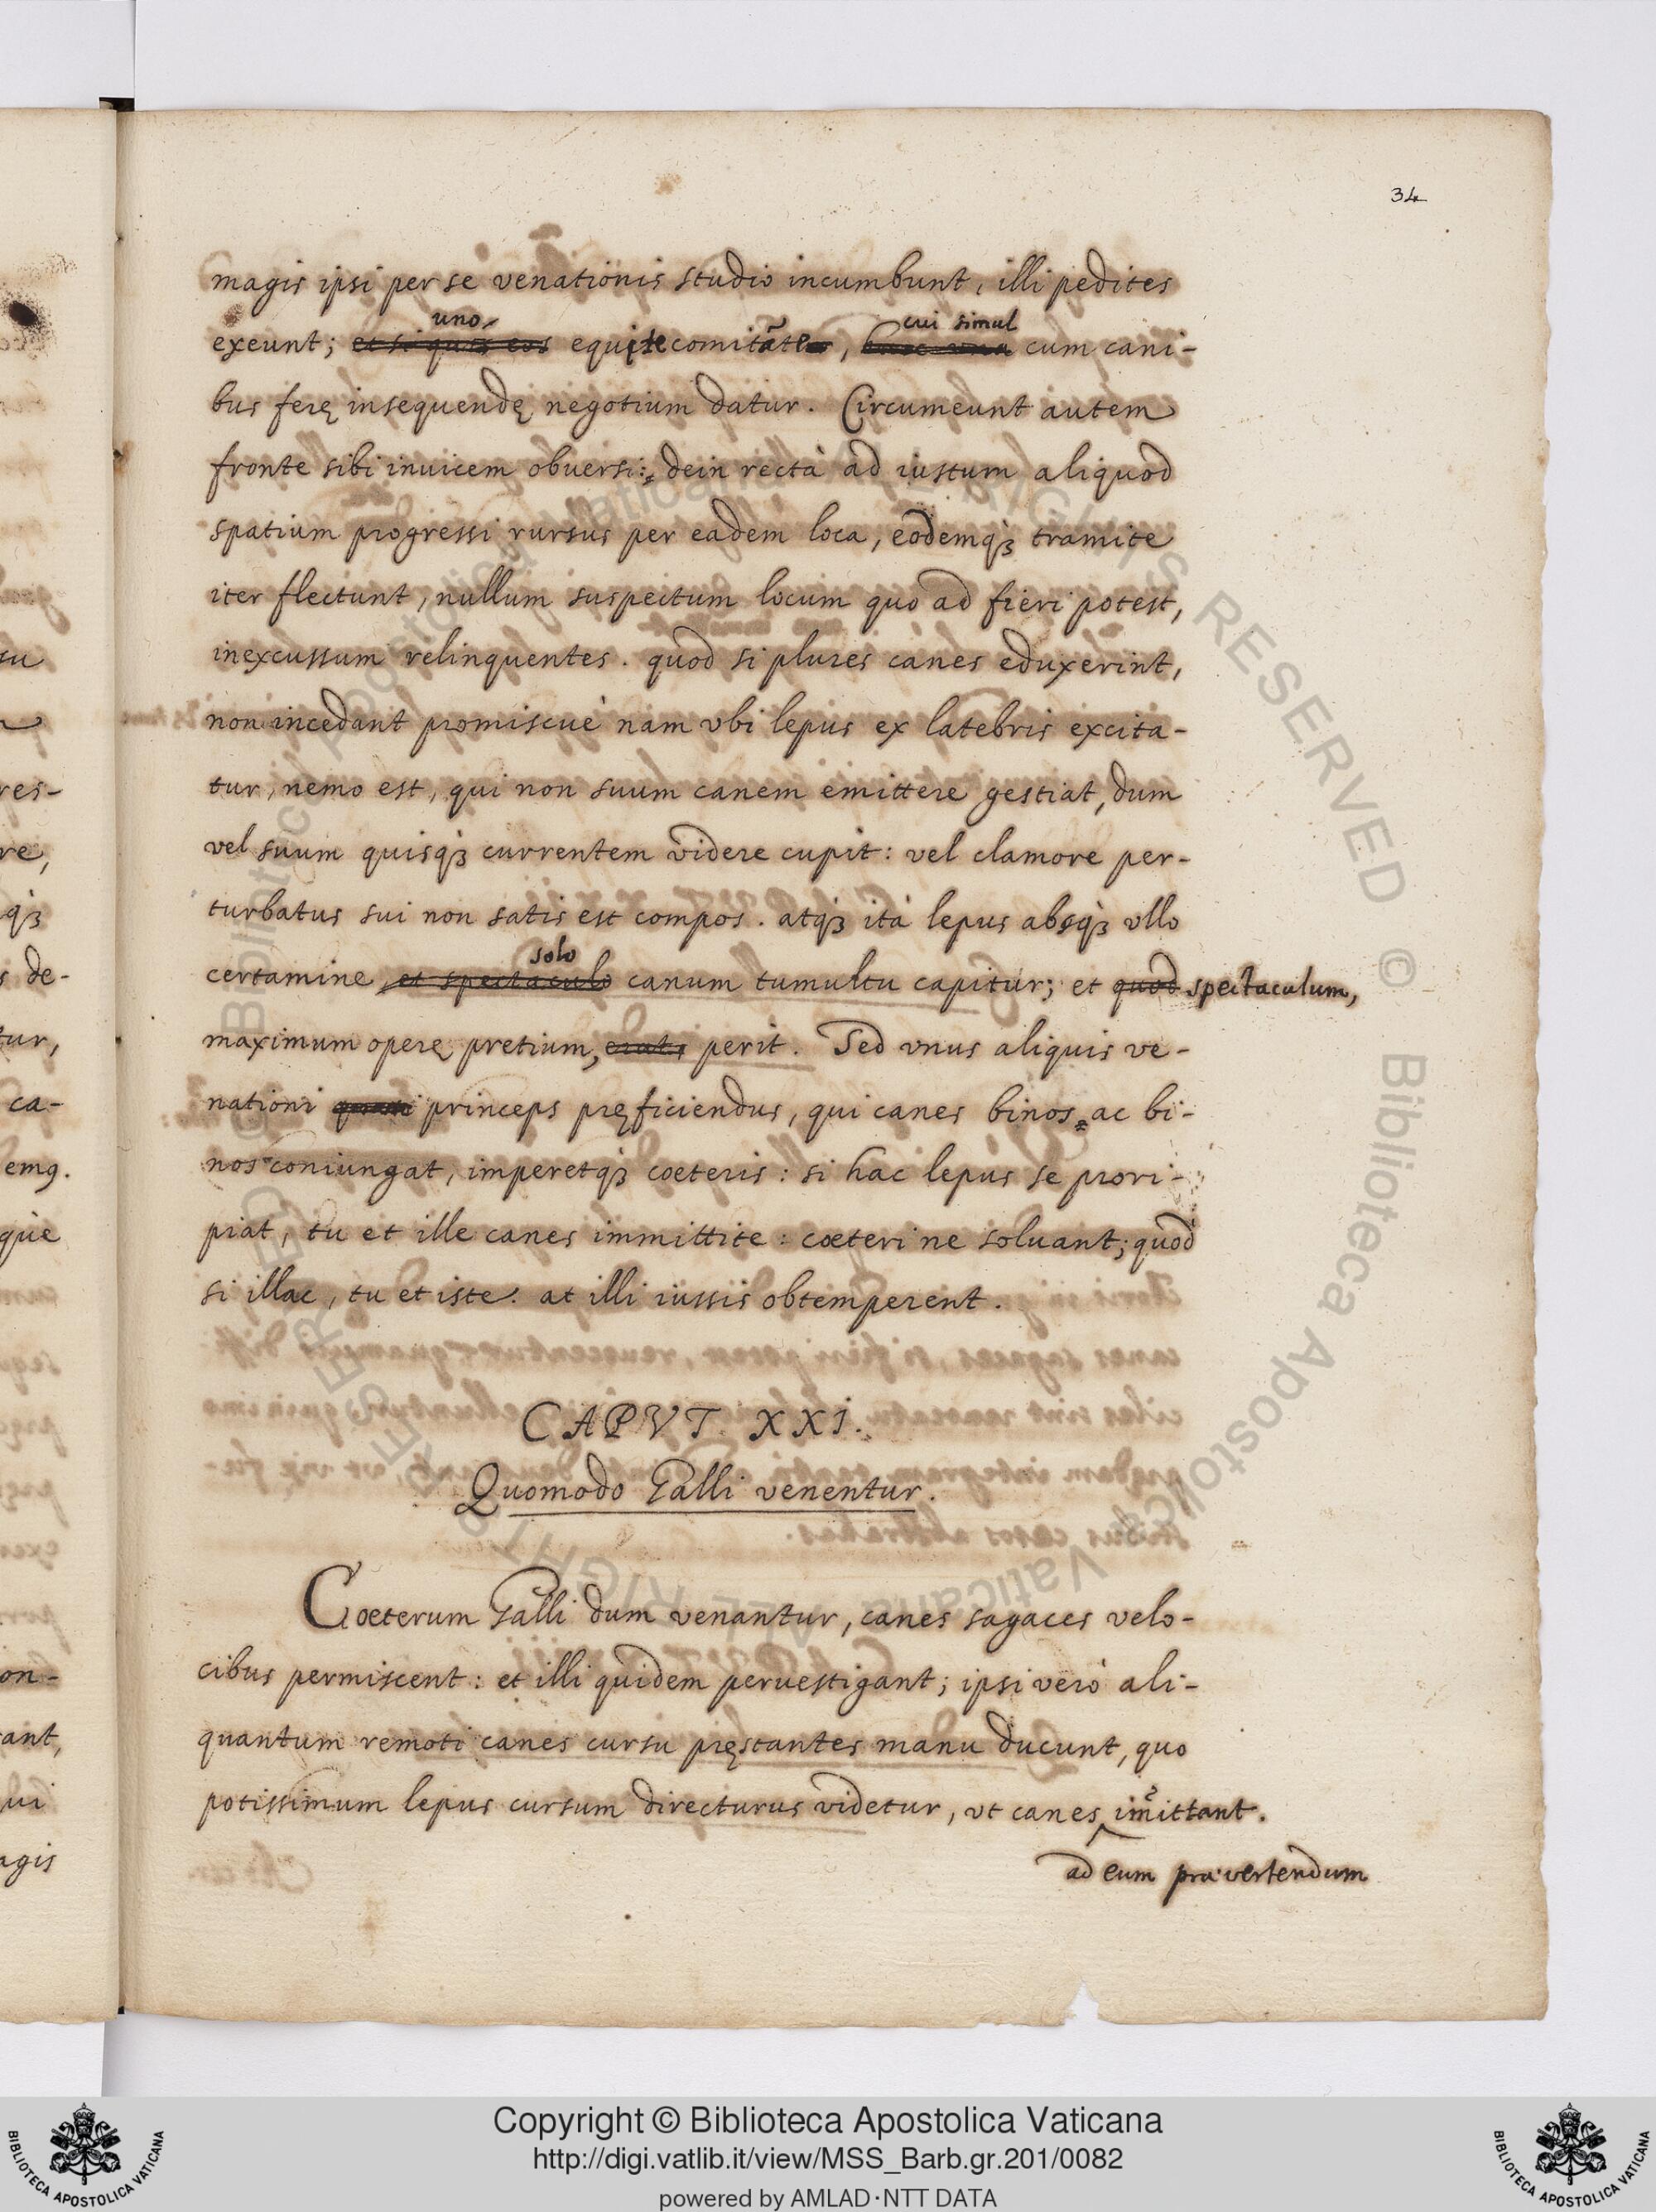 34
magis ipsi per se venationis studio incumbunt, illi pedites
uno cui simul
exeunt; et si quis eos equite comitāte, cum cani-
bus ferę insequendę negotium datur. Circumeunt autem
fronte sibi inuicem obuersi: dein rectà ad iustum aliquod
spatium progressi rursus per eadem loca, eodemq́ꝫ tramite
iter flectunt, nullum suspectum locum quo ad fieri potest,
inexcussum relinquentes. quod si plures canes eduxerint,
non incedant promiscuè nam vbi lepus ex latebris excita-
tur, nemo est, qui non suum canem emittere gestiat, dum
vel suum quisq́ꝫ currentem videre cupit: vel clamore per-
turbatus sui non satis est compos. atq́ꝫ ità lepus absq́ꝫ vllo
solo
certamine, et spectaculo canum tumultu capitur; et quod spectaculum,
maximum operę pretium, perit. Sed vnus aliquis ve-
nationi princeps pręficiendus, qui canes binos ac bi-
nos coniungat, imperetq́ꝫ coeteris: si hac lepus se prori-
piat, tu et ille canes immittite: coeteri ne soluant; quod
si illac, tu et iste. at illi iussis obtemperent.
CAPVT. XXI.
Quomodo Galli venentur.
Coeterum Galli dum venantur, canes sagaces velo-
cibus permiscent: et illi quidem peruestigant; ipsi verò ali-
quantum remoti canes cursu pręstantes manu ducunt, quo
potissimum lepus cursum directurus videtur, vt canes im̄ittant.
ad eum prævertendum
su
res-
re,
q́ꝫ
s de-
tur,
ca-
emq.
què
on-
rant,
qui
agis
Copyright © Biblioteca Apostolica Vaticana
http://digi.vatlib.it/view/MSS_Barb.gr.201/0082
powered by AMLAD·NTT DATA
BIBLIOTECA APOSTOLICA VATICANA
BIBLIOTECA APOSTOLICA VATICANA